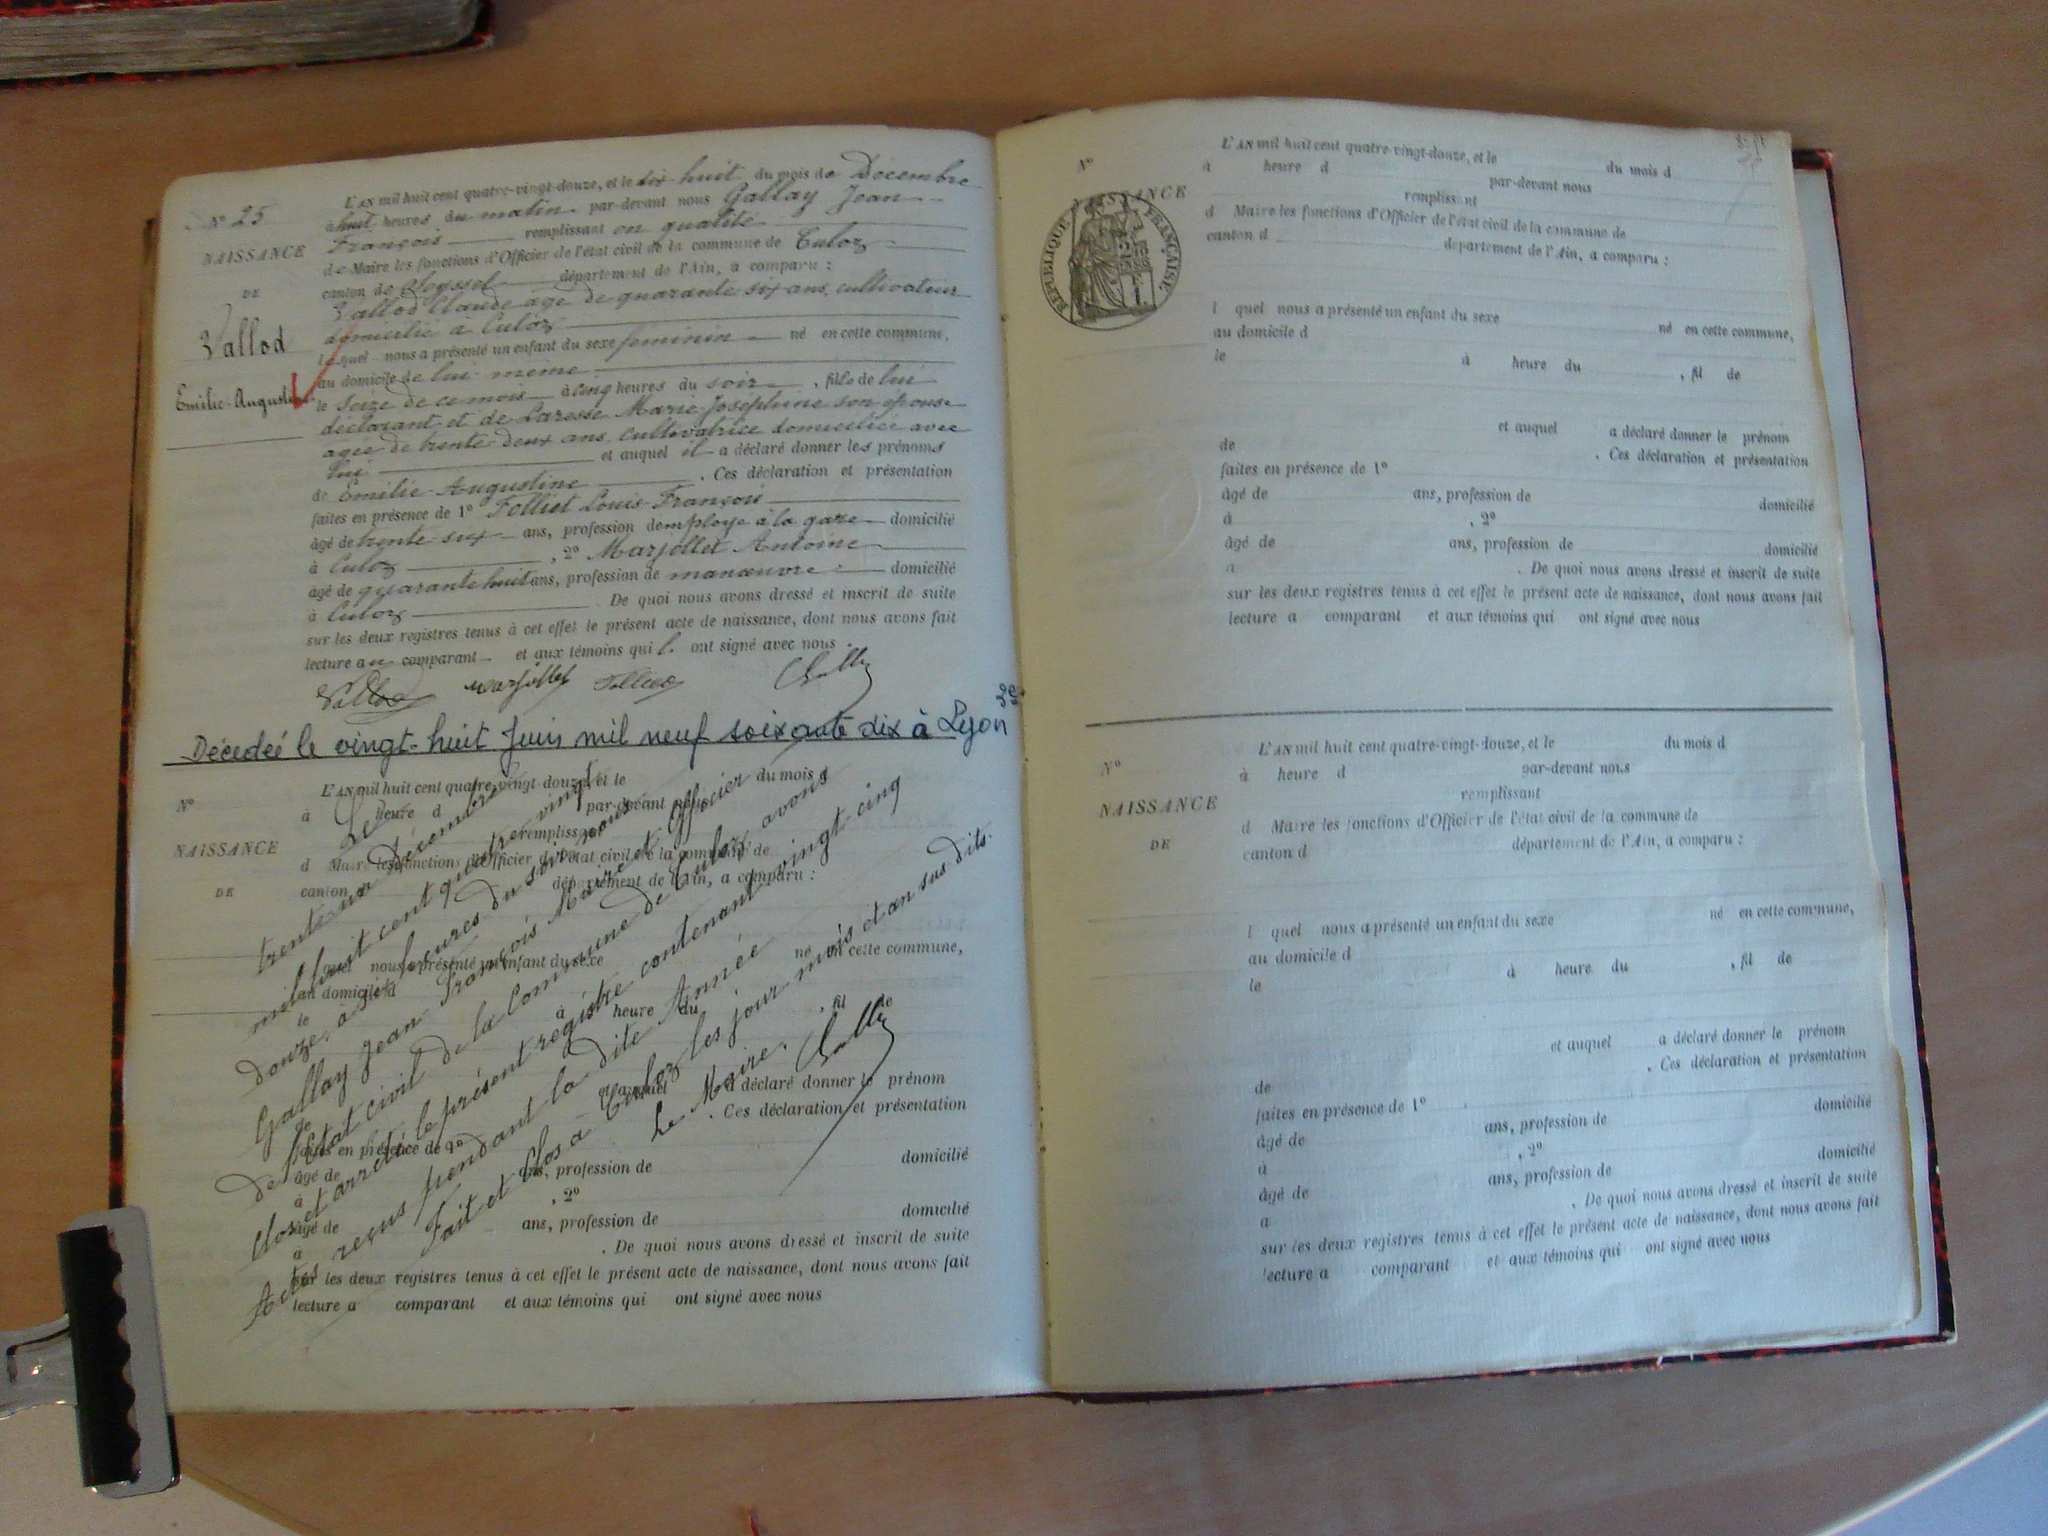 N° 25
NAISSANCE
DE
Vallod
Emilie-Augustine
L'AN mil huit cent quatre-vingt-douze, et le dix huit du mois de Décembre
à huit heures du matin par-devant nous Gallay Jean
François remplissant en qualité
de Maire les fonctions d'Officier de l'état civil de la commune de Culoz
canton de Seyssel département de l'Ain, a comparu :
Vallod Claude agé de quarante six ans, cultivateur
domicilié à Culoz
lequel nous a présenté un enfant du sexe féminin né en cette commune,
au domicile de lui-même
le seize de ce mois à cinq heures du soir, fille de lui
déclarant et de Laresse Marie Joséphine son épouse
agée de trente deux ans cultivatrice domiciliée avec
lui et auquel il a déclaré donner les prénoms
de Emilie Augustine . Ces déclaration et présentation
faites en présence de 1° Folliet Louis François
âgé de trente six ans, profession d'employé à la gare domicilié
à Culoz , 2° Marjollet Antoine
âgé de quarante huit ans, profession de manœuvre domicilié
à Culoz . De quoi nous avons dressé et inscrit de suite
sur les deux registres tenus à cet effet le présent acte de naissance, dont nous avons fait
lecture au comparant et aux témoins qui ont signé avec nous
Vallod Marjollet Folliet Gallay
Décédée le vingt-huit Juin mil neuf soixante dix à Lyon 3e
N°
NAISSANCE
DE
L'AN mil huit cent quatre-vingt-douze, et le du mois d
à heure d par-devant nous
remplissant
d Maire les fonctions d'Officier de l'état civil de la commune de
canton d département de l'Ain, a comparu :
l quel nous a présenté un enfant du sexe né en cette commune,
au domicile d
le à heure du , fil de
et auquel a déclaré donner le prénom
de . Ces déclaration et présentation
faites en présence de 1°
âgé de ans, profession de domicilié
à , 2°
âgé de ans, profession de domicilié
à . De quoi nous avons dressé et inscrit de suite
sur les deux registres tenus à cet effet le présent acte de naissance, dont nous avons fait
lecture a comparant et aux témoins qui ont signé avec nous
Le
trente un Décembre
mil huit cent quatre vingt
douze, à six heures du soir nous
Gallay Jean François Maire et Officier
de l'Etat civil de la Commune de Culoz avons
clos et arrêté le présent registre contenant vingt cinq
Actes reçus pendant la dite Année
Fait et clos à Culoz les jour mois et an sus dits.
Le Maire,
Gallay
N°
NAISSANCE
RÉPUBLIQUE FRANÇAISE
L'AN mil huit cent quatre-vingt-douze, et le du mois d
à heure d par-devant nous
remplissant
d Maire les fonctions d'Officier de l'état civil de la commune de
canton d département de l'Ain, a comparu :
l quel nous a présenté un enfant du sexe né en cette commune,
au domicile d
le à heure du , fil de
et auquel a déclaré donner le prénom
de . Ces déclaration et présentation
faites en présence de 1°
âgé de ans, profession de domicilié
à , 2°
âgé de ans, profession de domicilié
a . De quoi nous avons dressé et inscrit de suite
sur les deux registres tenus à cet effet le présent acte de naissance, dont nous avons fait
lecture a comparant et aux témoins qui ont signé avec nous
N°
NAISSANCE
DE
L'AN mil huit cent quatre-vingt-douze, et le du mois d
à heure d par-devant nous
remplissant
d Maire les fonctions d'Officier de l'état civil de la commune de
canton d département de l'Ain, a comparu :
l quel nous a présenté un enfant du sexe né en cette commune,
au domicile d
le à heure du , fil de
et auquel a déclaré donner le prénom
de . Ces déclaration et présentation
faites en présence de 1°
âgé de ans, profession de domicilié
à , 2°
âgé de ans, profession de domicilié
a . De quoi nous avons dressé et inscrit de suite
sur les deux registres tenus à cet effet le présent acte de naissance, dont nous avons fait
lecture a comparant et aux témoins qui ont signé avec nous